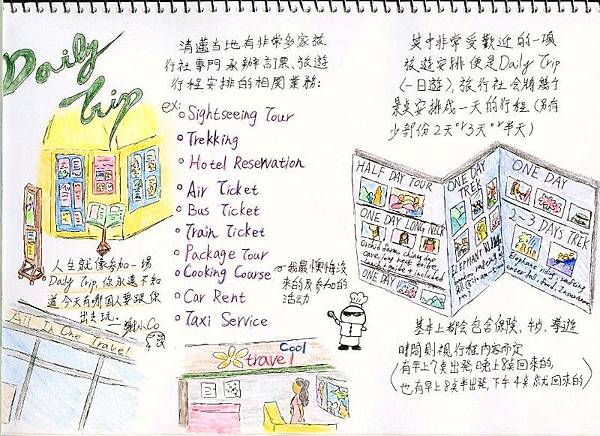 Daily
Trip
清邁当地有非常多家旅
行社專門承辦訂票、旅遊
行程安排的相関業務:
ex:
Sightseeing Tour
Trekking
Hotel Reservation
Air Ticket
Bus Ticket
Train Ticket
Package Tour
Cooking Course
Car Rent
Taxi Service
我最懊悔沒
來的及参加的
活动
人生就像参加一場
Daily Trip, 你永遠不知
道今天有哪個人要跟你
出去玩.
All In One Travel
Cool
travel
其中非常受歡迎的一項
旅遊安排便是Daily Trip
(一日遊), 旅行社会將幾个
景点安排成一天的行程(另有
少部份2天or3天or半天)
HALF DAY TOUR
ONE DAY LONG NECK
ONE DAY
ONE DAY
TREK
ONE DAY
2~3 DAYS TREK
基本上都会包含保險、午炒、導遊
時間則視行程内容而定
(有早上7点出發,晚上8点回來的,
也有早上8点半出發,下午4点就回來的)